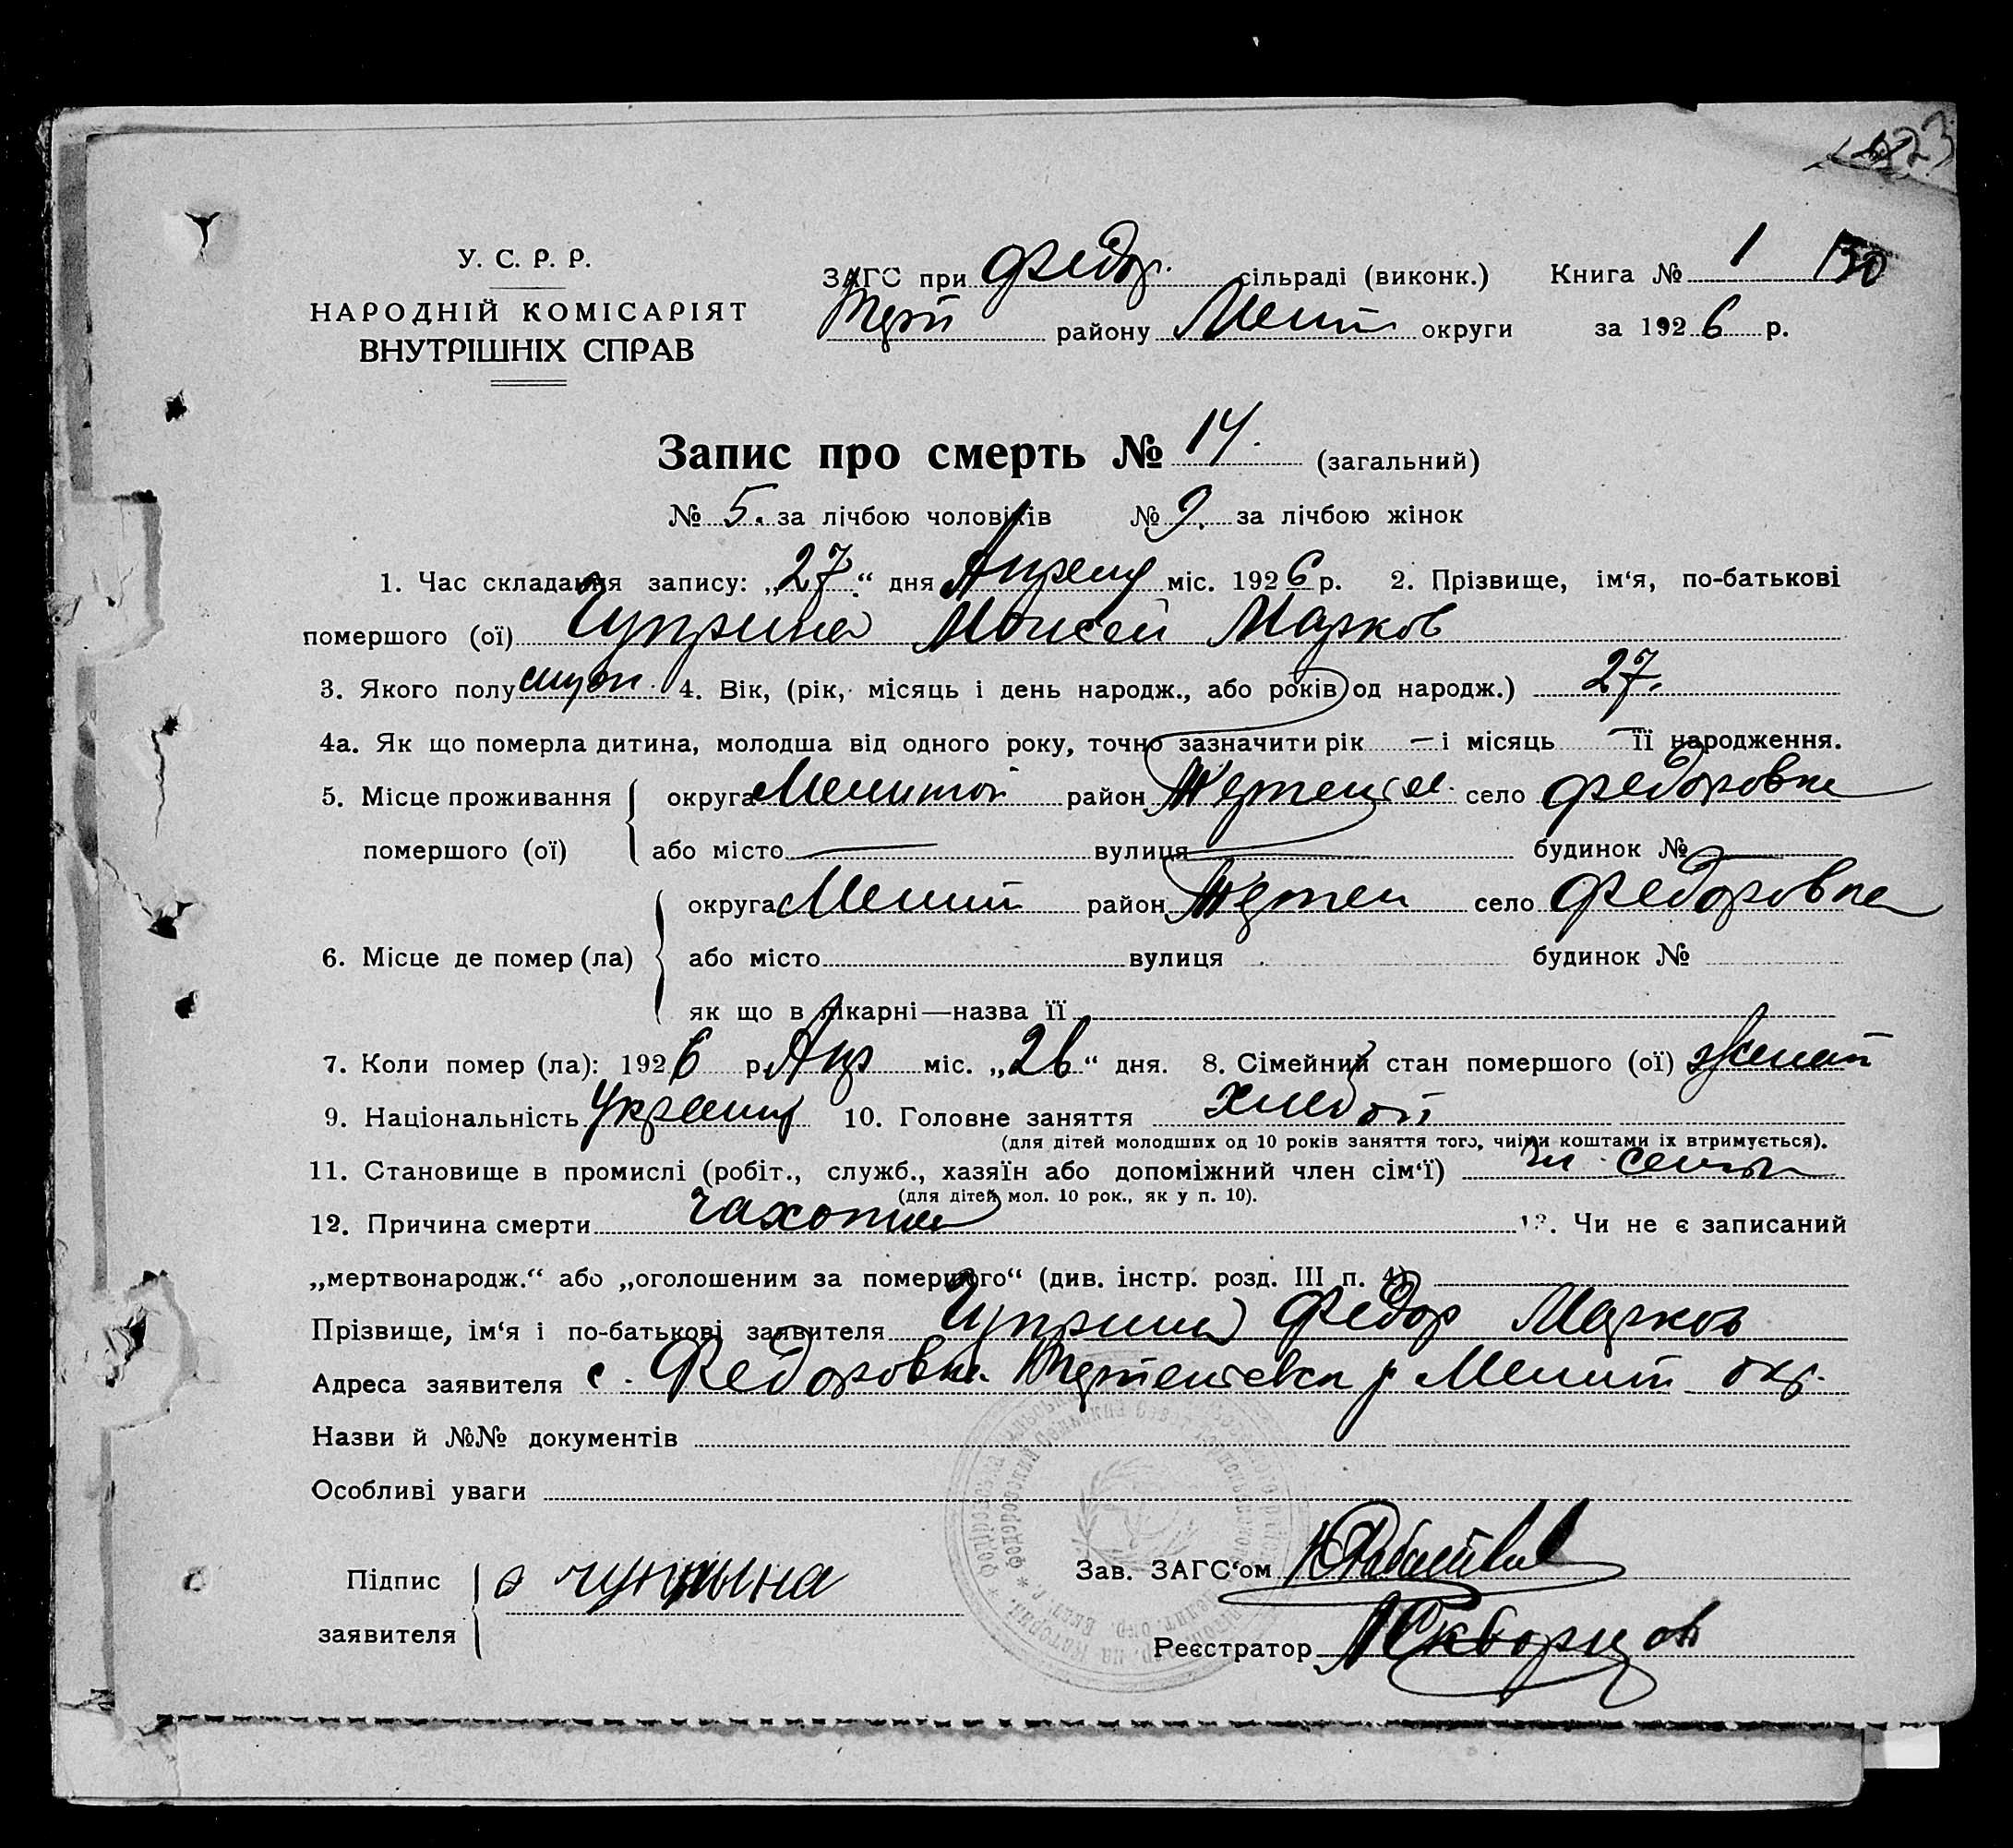 У. С. Р. Р.
НАРОДНІЙ КОМІСАРІЯТ
ВНУТРІШНІХ СПРАВ
ЗАГС при Федор. сільраді (виконк.) Книга № 1
району Мелит округи за 1926 р.
Запис про смерть № 14. (загальний)
№ 5. за лічбою чоловіків № 9. за лічбою жінок
1. Час складання запису: „27.“ дня Апреля міс. 1926 р. 2. Прізвище, ім‘я, по-батькові
помершого (ої) Чуприна Моисей Марков
3. Якого полу 4. Вік, (рік, місяць і день народж., або років од народж.) 27.
4а. Як що померла дитина, молодша від одного року, точно зазначити рік — і місяць — її народження.
5. Місце проживання округа Мелитой район село Федоровка
помершого (ої) або місто — вулиця — будинок № —
округа Мелит район село Федоровка
6. Місце де помер (ла) або місто вулиця будинок №
як що в лікарні—назва її
7. Коли помер (ла): 1926 р. Апр міс. „26“ дня. 8. Сімейний стан помершого (ої) женат
9. Національність Украинц 10. Головне заняття хлебоп
(для дітей молодших од 10 років заняття того, чиїми коштами їх втримується).
11. Становище в промислі (робіт., служб., хазяїн або допоміжний член сім‘ї) чл. семьи
(для дітей мол. 10 рок., як у п. 10).
12. Причина смерти чахотка 13. Чи не є записаний
„мертвонародж.“ або „оголошеним за помершого“ (див. інстр. розд. III п. 4)
Прізвище, ім‘я і по-батькові заявителя Чуприна Федор Марков
Адреса заявителя с. Федоровка р Мелит окр.
Назви й №№ документів
Особливі уваги
Підпис
заявителя чупрына
Зав. ЗАГС‘ом
Реєстратор Скворцов